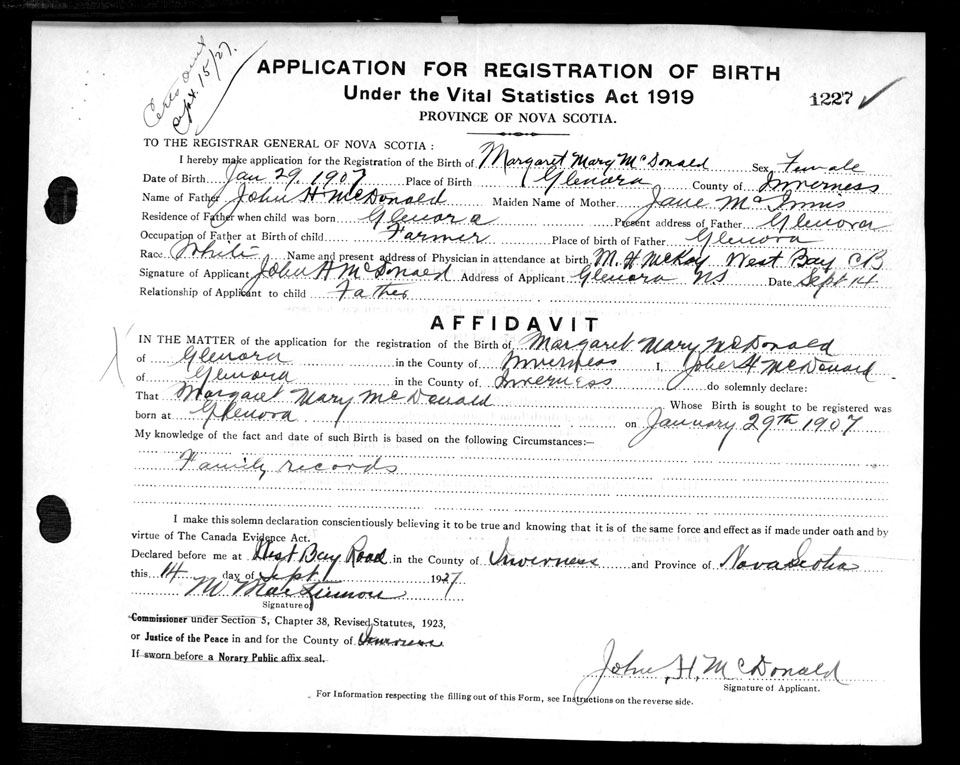 Certs Sent
Sept. 15/27.
APPLICATION FOR REGISTRATION OF BIRTH
Under the Vital Statistics Act 1919
1227 ✓
PROVINCE OF NOVA SCOTIA.
TO THE REGISTRAR GENERAL OF NOVA SCOTIA :
I hereby make application for the Registration of the Birth of Margaret Mary McDonald Sex Female
Date of Birth Jan 29. 1907 Place of Birth Glenora County of Inverness
Name of Father John H McDonald Maiden Name of Mother Jane McInnis
Residence of Father when child was born Glenora Present address of Father Glenora
Occupation of Father at Birth of child Farmer Place of birth of Father Glenora
Race White Name and present address of Physician in attendance at birth M. H McKay West Bay CB
Signature of Applicant John H McDonald Address of Applicant Glenora NS Date Sept 14
Relationship of Applicant to child Father
AFFIDAVIT
IN THE MATTER of the application for the registration of the Birth of Margaret Mary McDonald
of Glenora in the County of Inverness I, John H McDonald
of Glenora in the County of Inverness do solemnly declare:
That Margaret Mary McDonald Whose Birth is sought to be registered was
born at Glenora on January 29th 1907
My knowledge of the fact and date of such Birth is based on the following Circumstances:—
Family records
I make this solemn declaration conscientiously believing it to be true and knowing that it is of the same force and effect as if made under oath and by
virtue of The Canada Evidence Act.
Declared before me at West Bay Road in the County of Inverness and Province of Nova Scotia
this 14 day of Sept 1927
M. MacKinnon
Signature of
Commissioner under Section 5, Chapter 38, Revised Statutes, 1923,
or Justice of the Peace in and for the County of Inverness
If sworn before a Norary Public affix seal.
John H. McDonald
Signature of Applicant.
For Information respecting the filling out of this Form, see Instructions on the reverse side.